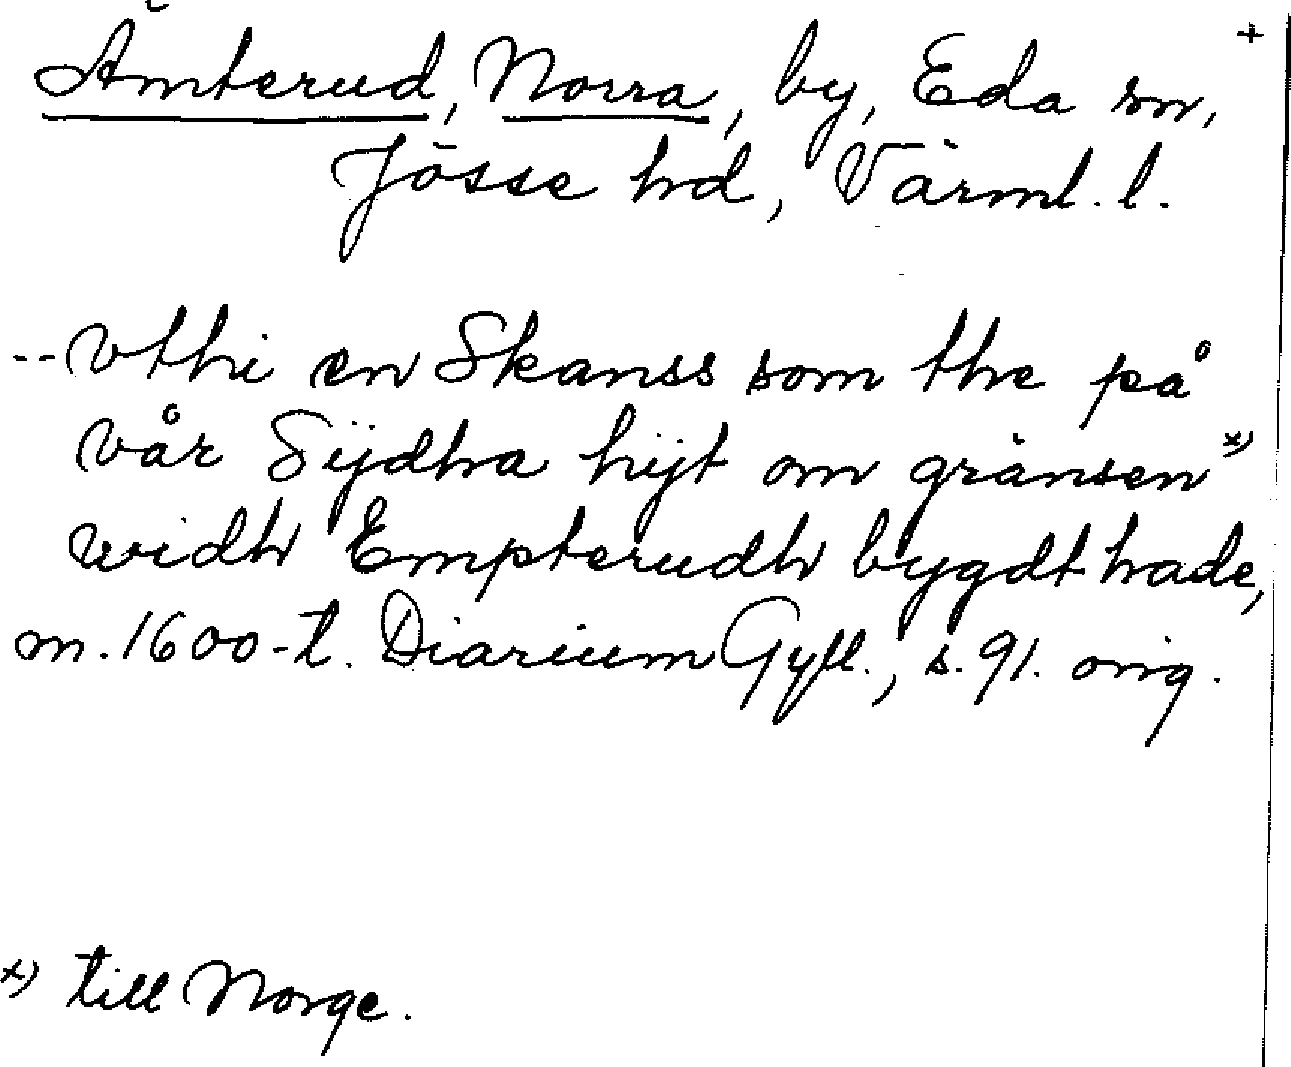 Ämterud, Norra, by, Eda sn, +
Jösse hd, Värml. l.
-- vthi en Skanss som the på
vår Sijdha hijt om gränsen x)
widh Empterudh bygdt hade,
m. 1600-t. Diarium Gyll., s. 91. orig.
x) till Norge.